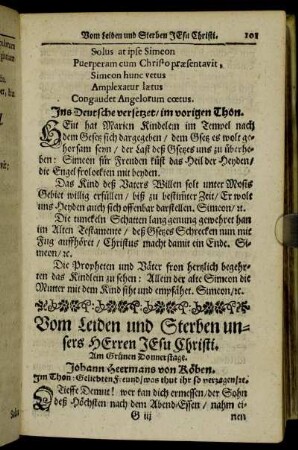 Vom Leiden und Sterben JEsu Christi. 101
Solus at ipse Simeon
Puerperam cum Christo præsentavit,
Simeon hunc vetus
Amplexatur lætus
Congaudet Angelorum cœtus.
Ins Deutsche versetzet/ im vorigen Thon.
HEut hat Marien Kindelein im Tempel nach
dem Gesetz sich dargegeben / dem Gsetz es wolt ge-
horsam seyn / der Last deß Gsetzes uns zu überhe-
ben: Simeon für Freuden küst das Heil der Heyden/
die Engel frolockten mit beyden.
Das Kind deß Vaters Willen solt unter Mosis
Gebiet willig erfüllen / biß zu bestimter Zeit/ Er wolt
uns Heyden auch sich offenbar darstellen. Simeon/ ꝛc.
Die tunckeln Schatten lang genung gewehret han
im Alten Testamente / deß Gsetzes Schrecken nun mit
Fug auffhöret / Christus macht damit ein Ende. Si-
meon/ ꝛc.
Die Propheten und Väter fron hertzlich begehr-
ten das Kindlein zu sehen: Allein der alte Simeon die
Mutter mit dem Kind siht und empfähet. Simeon/ ꝛc.
Vom Leiden und Sterben un-
sers HErren JEsu Christi.
Am Grünen Donnerstage.
Johann Heermans von Köben.
Im Thon: Geliebten Freund/ was thut ihr so verzagen/ ꝛc.
O Tieffe Demut! wer kan dich ermessen/ der Sohn
deß Höchsten nach dem Abend-Essen / nahm ei-
G iij nen